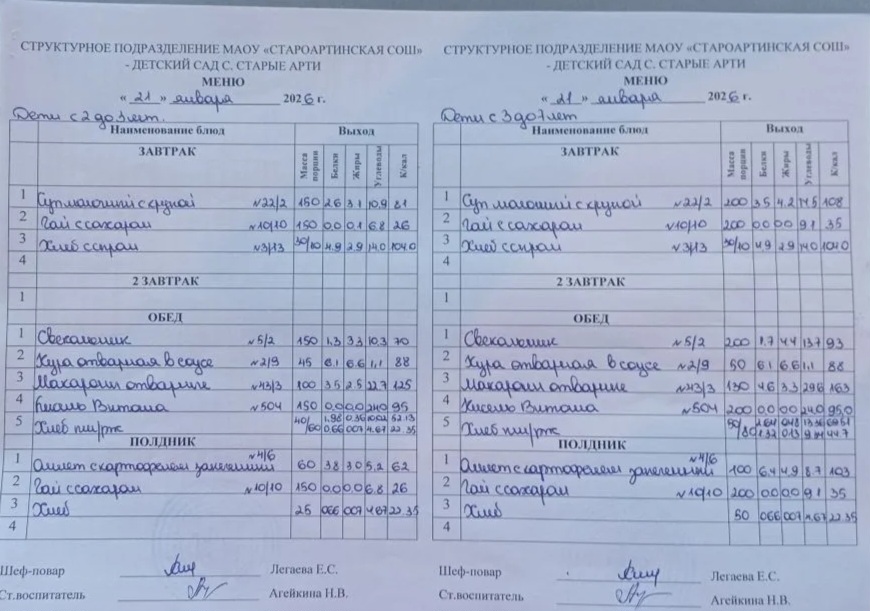 СТРУКТУРНОЕ ПОДРАЗДЕЛЕНИЕ МАОУ «СТАРОАРТИНСКАЯ СОШ»
- ДЕТСКИЙ САД С. СТАРЫЕ АРТИ
МЕНЮ
« 21 » января 2026 г.
Дети с 2 до 3 лет.
Наименование блюд Выход
ЗАВТРАК Масса порции Белки Жиры Углеводы К/кал
1 Суп молочный с крупой №22/2 150 2.6 3.1 10,9 81
2 Чай с сахаром №10/10 150 0.0 0.1 6.8 26
3 Хлеб с сыром №3/13 30/10 4.9 2.9 14.0 104.0
4
2 ЗАВТРАК
1
ОБЕД
1 Свекольник №5/2 150 1,3 3.3 10,3 70
2 Кура отварная в соусе №2/9 45 6.1 6.6 1,1 88
3 Макароны отварные №43/3 100 3.5 2.5 22.7 125
4 Кисель Витоша №504 150 0.0 0.0 24.0 95
5 Хлеб пш/рж 40/60 1.98 0.36 10.02 52.13
0.66 0.07 4.67 22.35
ПОЛДНИК
1 Омлет с картофелем запеченный №4/6 60 3.8 3.0 5.2 62
2 Чай с сахаром №10/10 150 0.0 0.0 6.8 26
3 Хлеб 25 0.66 0.07 4.67 22.35
4
Шеф-повар Легаева Е.С.
Ст.воспитатель Агейкина Н.В.
СТРУКТУРНОЕ ПОДРАЗДЕЛЕНИЕ МАОУ «СТАРОАРТИНСКАЯ СОШ»
- ДЕТСКИЙ САД С. СТАРЫЕ АРТИ
МЕНЮ
« 21 » января 2026 г.
Дети с 3 до 7 лет
Наименование блюд Выход
ЗАВТРАК Масса порции Белки Жиры Углеводы К/кал
1 Суп молочный с крупой №22/2 200 3.5 4.2 14.5 108
2 Чай с сахаром №10/10 200 0.0 0.0 9.1 35
3 Хлеб с сыром №3/13 30/10 4.9 2.9 14.0 104.0
4
2 ЗАВТРАК
1
ОБЕД
1 Свекольник №5/2 200 1.7 4.4 13.7 93
2 Кура отварная в соусе №2/9 50 6.1 6.6 1.1 88
3 Макароны отварные №43/3 130 4.6 3.3 29.6 163
4 Кисель Витоша №504 200 0.0 0.0 24.0 95.0
5 Хлеб пш/рж 50/80 2.64 0.48 13.36 69.51
1.32 0.13 9.34 44.7
ПОЛДНИК
1 Омлет с картофелем запеченный №4/6 100 6.4 4.9 8.7 103
2 Чай с сахаром №10/10 200 0.0 0.0 9.1 35
3 Хлеб 50 0.66 0.07 4.67 22.35
4
Шеф-повар Легаева Е.С.
Ст.воспитатель Агейкина Н.В.